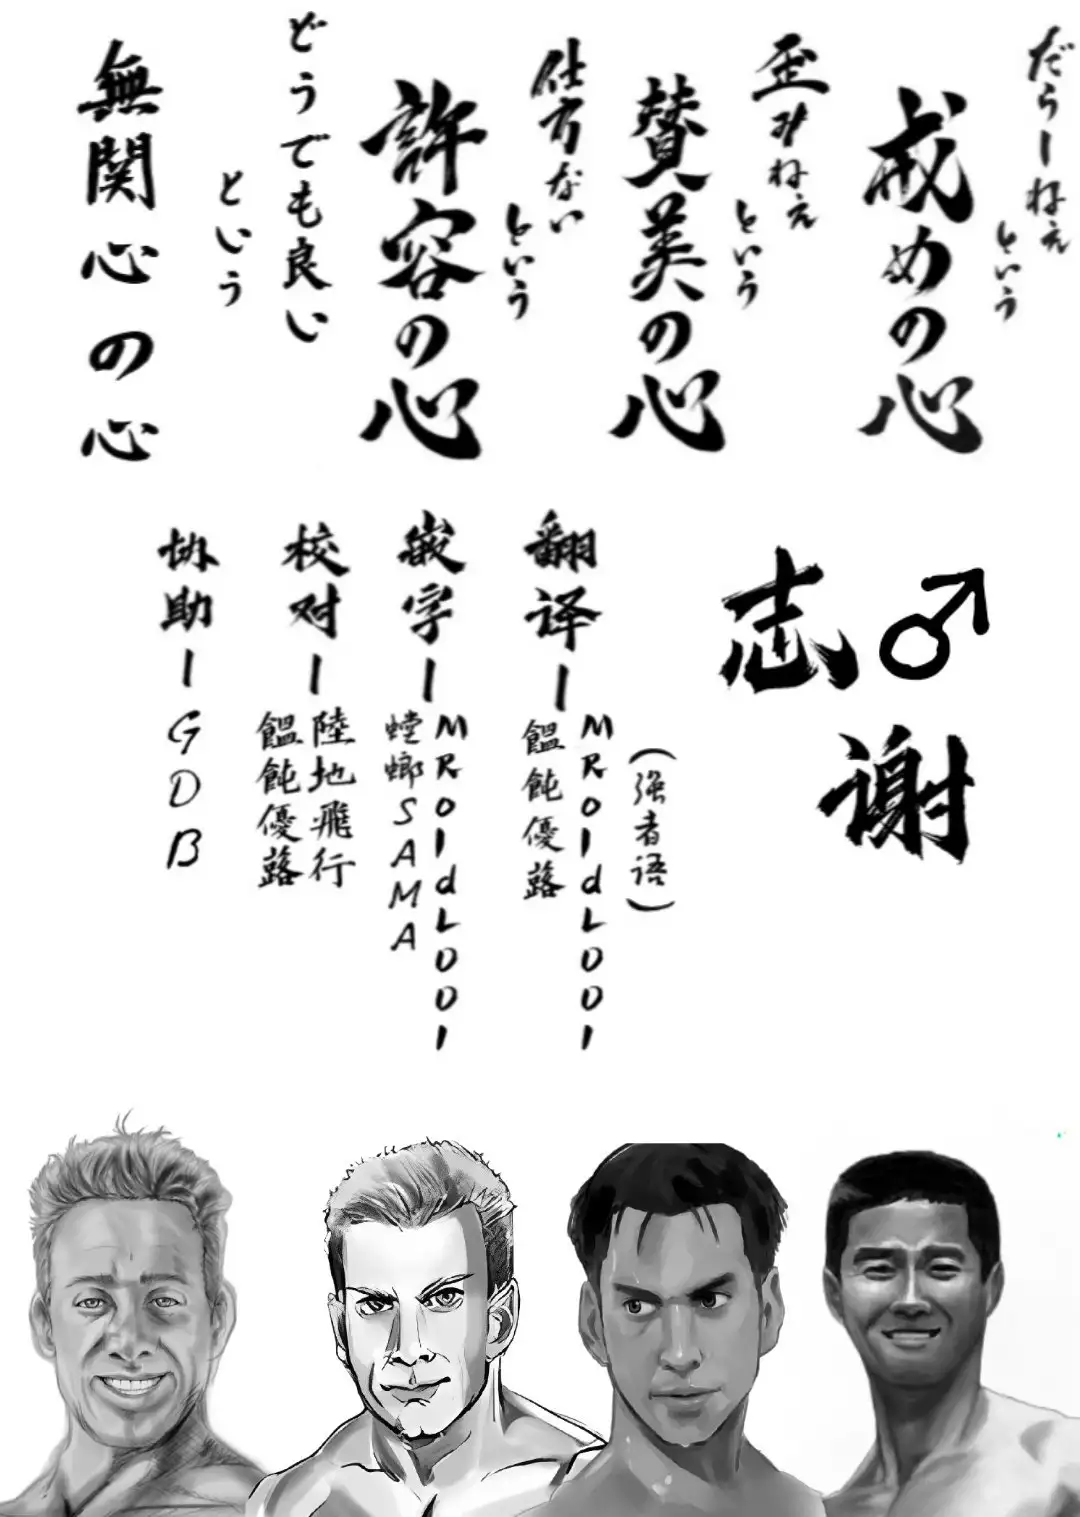 だらーねぇ
という
戒めの心
歪みねぇ
という
賛美の心
仕方ない
という
許容の心
どうでも良い
という
無関心の心
志♂
谢
(强者语)
翻译ー
MRoldLDDI
餛飩優蕗
嵌字ー
MRoldLDDI
螳螂SAMA
校对ー
陸地飛行
餛飩優蕗
协助ー
GDB